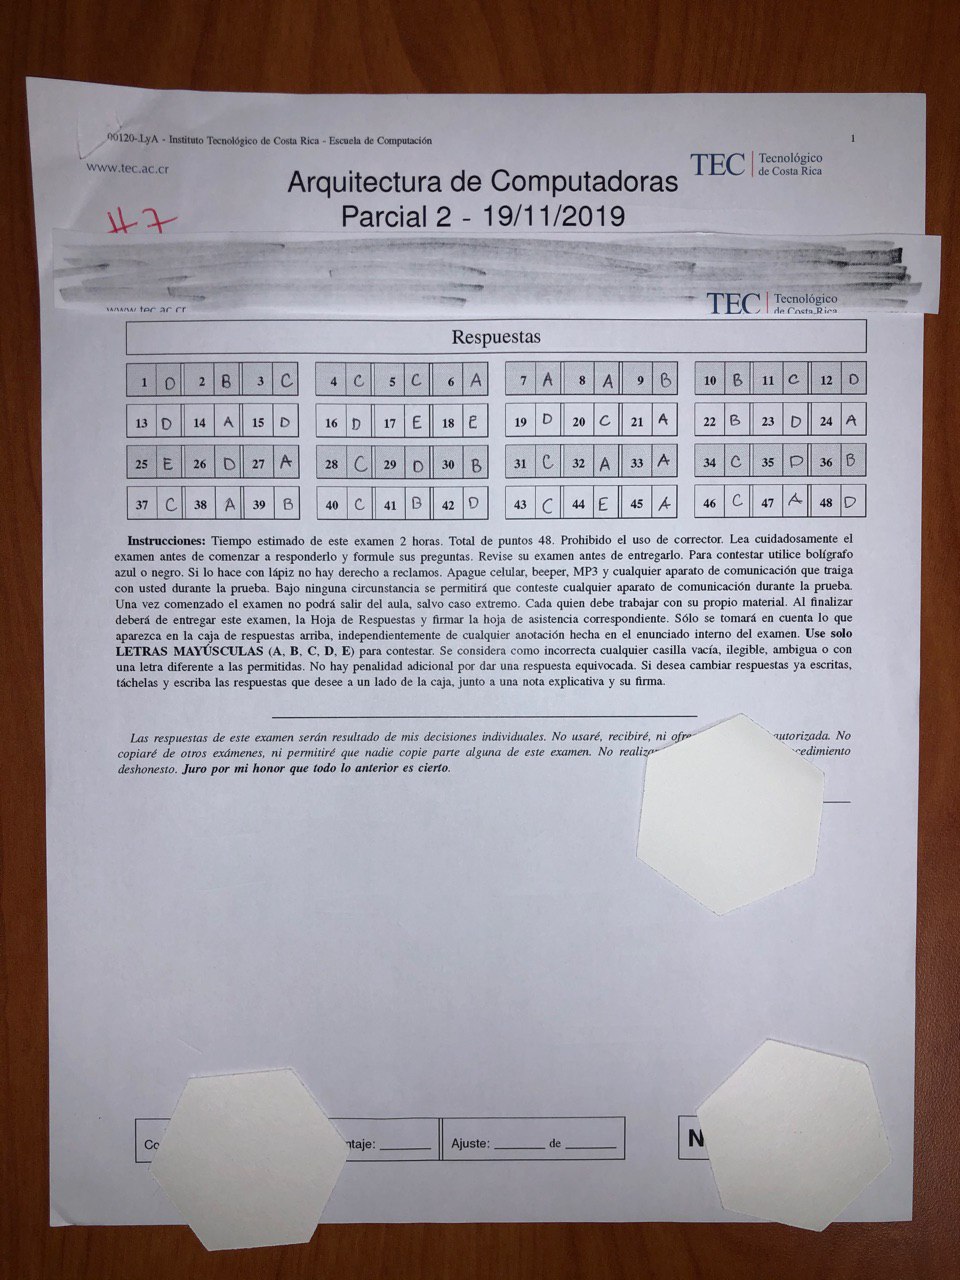 00120-.LyA - Instituto Tecnológico de Costa Rica - Escuela de Computación 1
www.tec.ac.cr
TEC | Tecnológico
de Costa Rica
Arquitectura de Computadoras
Parcial 2 - 19/11/2019
#7
www.tec.ac.cr
TEC | Tecnológico
de Costa Rica
Respuestas
1 D 2 B 3 C 4 C 5 C 6 A 7 A 8 A 9 B 10 B 11 C 12 D
13 D 14 A 15 D 16 D 17 E 18 E 19 D 20 C 21 A 22 B 23 D 24 A
25 E 26 D 27 A 28 C 29 D 30 B 31 C 32 A 33 A 34 C 35 D 36 B
37 C 38 A 39 B 40 C 41 B 42 D 43 C 44 E 45 A 46 C 47 A 48 D
Instrucciones: Tiempo estimado de este examen 2 horas. Total de puntos 48. Prohibido el uso de corrector. Lea cuidadosamente el
examen antes de comenzar a responderlo y formule sus preguntas. Revise su examen antes de entregarlo. Para contestar utilice bolígrafo
azul o negro. Si lo hace con lápiz no hay derecho a reclamos. Apague celular, beeper, MP3 y cualquier aparato de comunicación que traiga
con usted durante la prueba. Bajo ninguna circunstancia se permitirá que conteste cualquier aparato de comunicación durante la prueba.
Una vez comenzado el examen no podrá salir del aula, salvo caso extremo. Cada quien debe trabajar con su propio material. Al finalizar
deberá de entregar este examen, la Hoja de Respuestas y firmar la hoja de asistencia correspondiente. Sólo se tomará en cuenta lo que
aparezca en la caja de respuestas arriba, independientemente de cualquier anotación hecha en el enunciado interno del examen. Use solo
LETRAS MAYÚSCULAS (A, B, C, D, E) para contestar. Se considera como incorrecta cualquier casilla vacía, ilegible, ambigua o con
una letra diferente a las permitidas. No hay penalidad adicional por dar una respuesta equivocada. Si desea cambiar respuestas ya escritas,
táchelas y escriba las respuestas que desee a un lado de la caja, junto a una nota explicativa y su firma.
Las respuestas de este examen serán resultado de mis decisiones individuales. No usaré, recibiré, ni ofre autorizada. No
copiaré de otros exámenes, ni permitiré que nadie copie parte alguna de este examen. No realiza cedimiento
deshonesto. Juro por mi honor que todo lo anterior es cierto.
Co ntaje: ______ Ajuste: ______ de ______ N